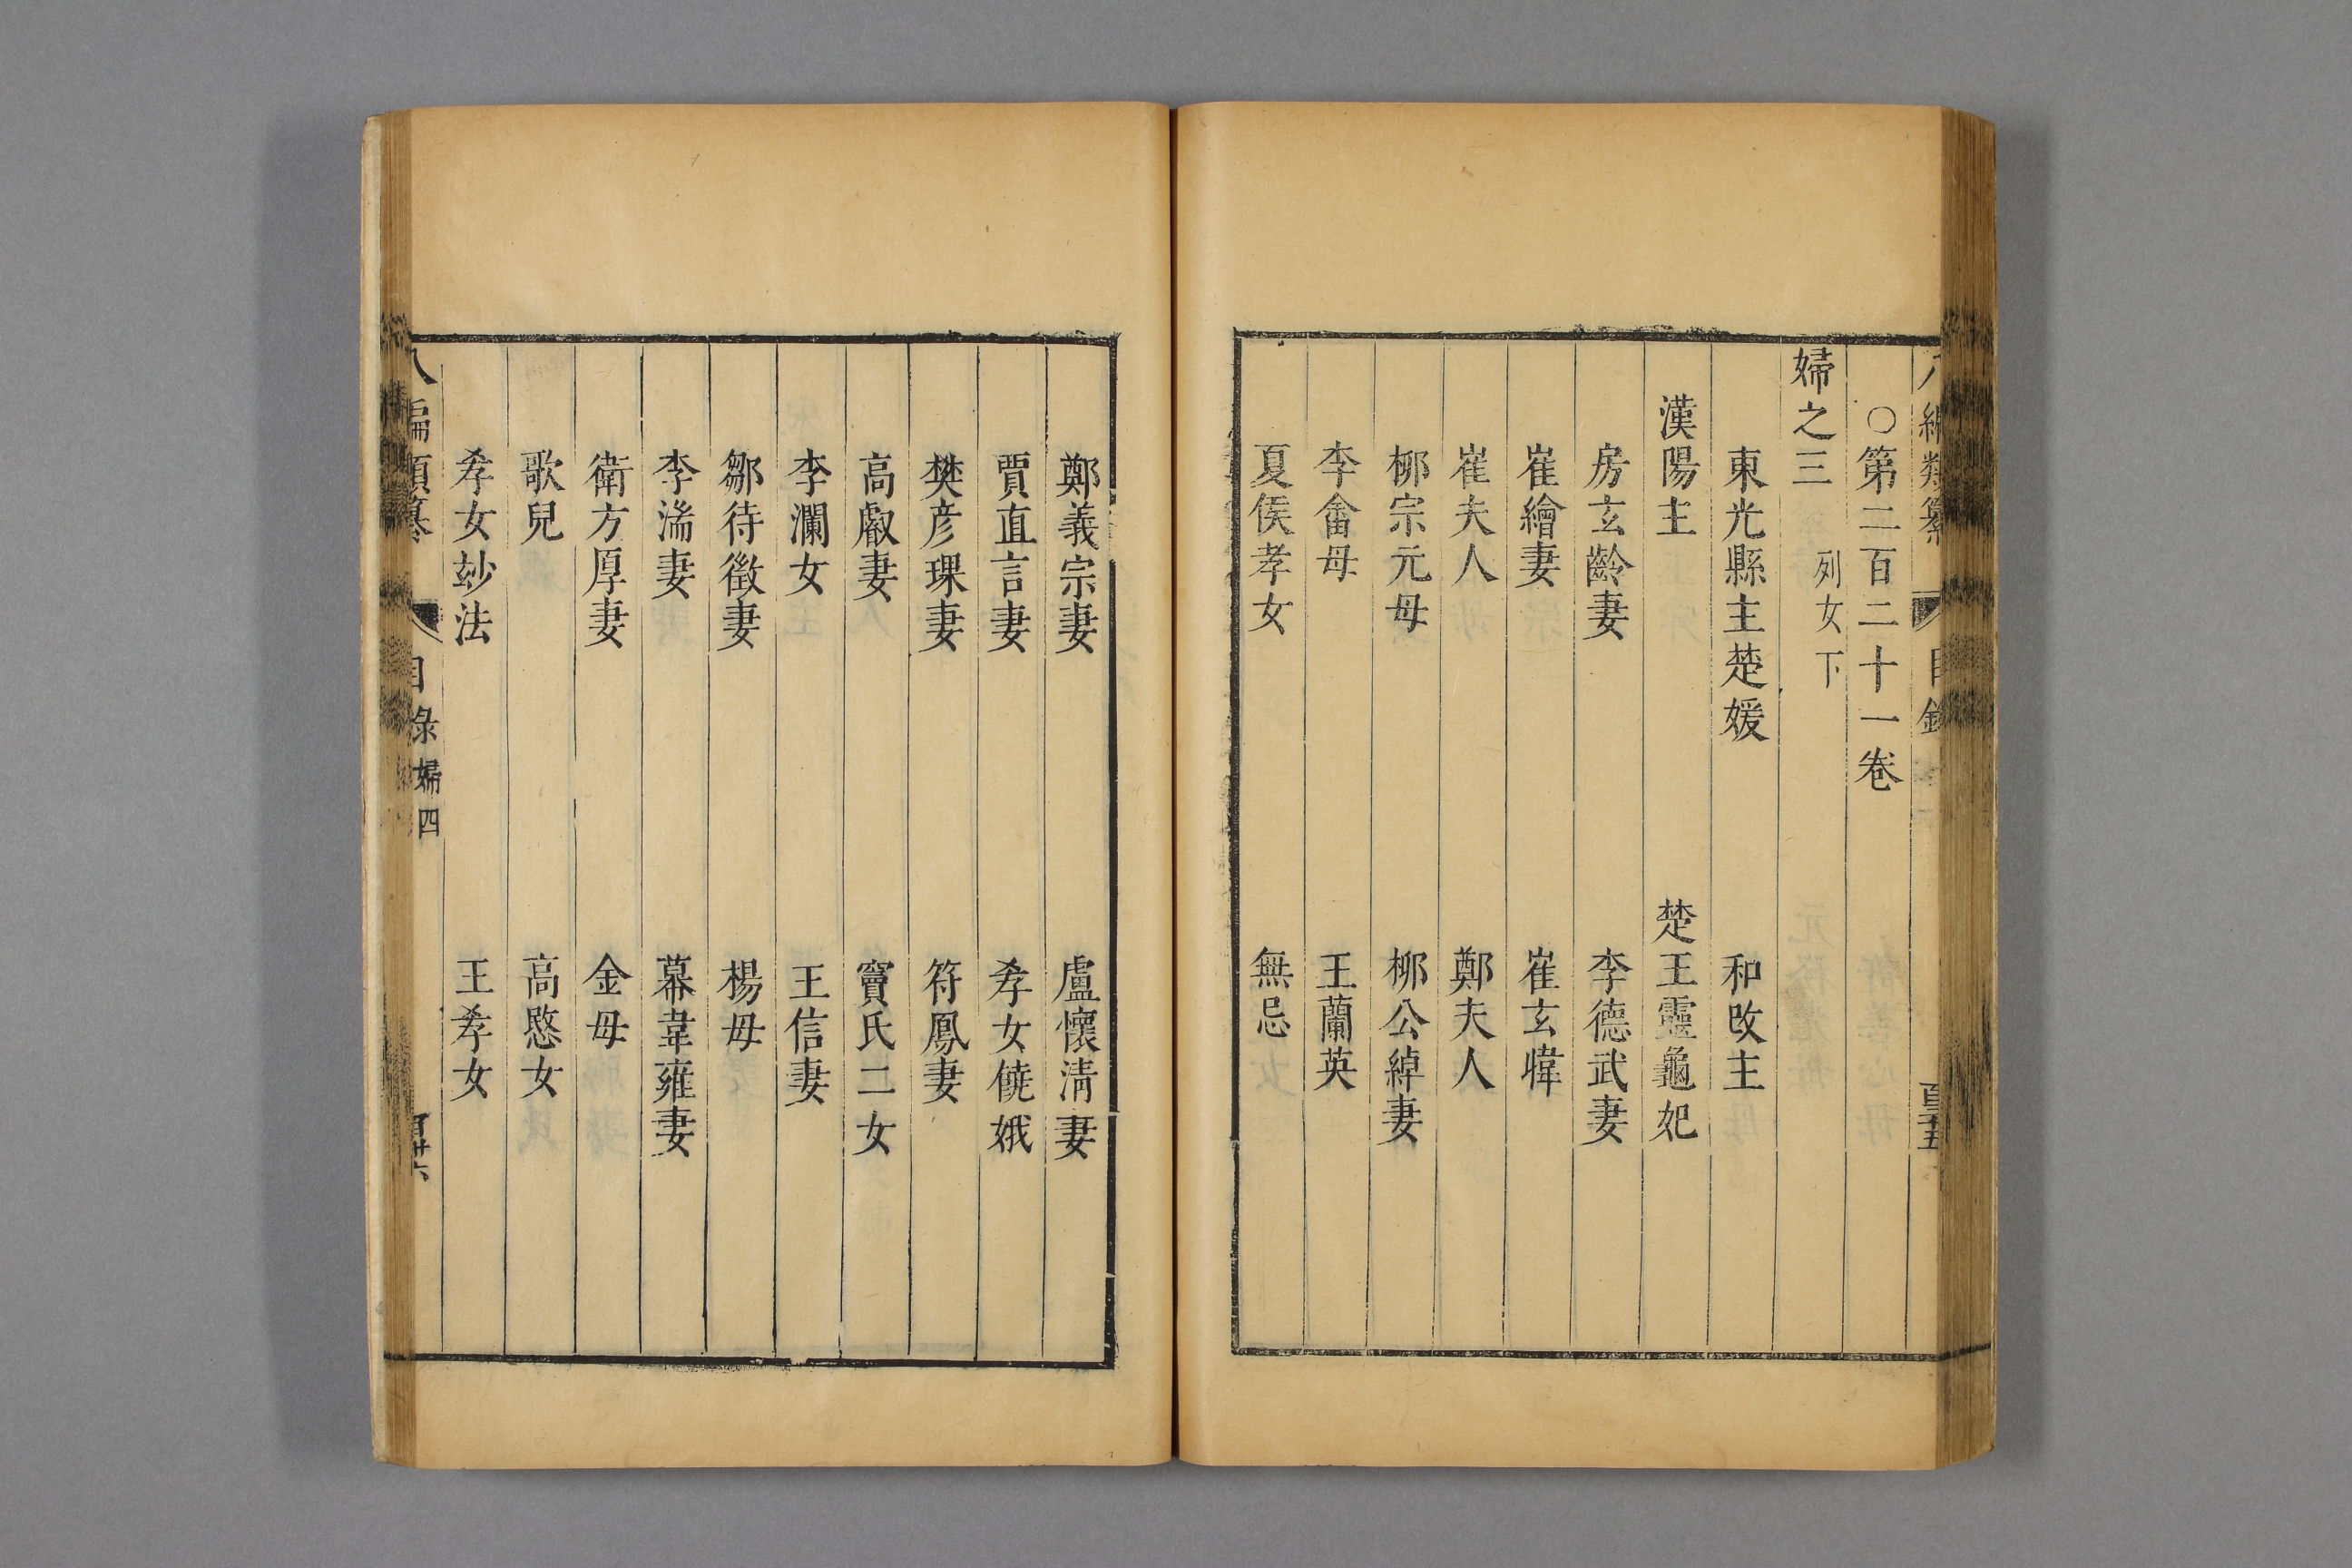 八編類纂 目錄 百三十五
○第二百二十一卷
婦之三 列女下
東光縣主楚媛 和政主
漢陽主 楚王靈龜妃
房玄齡妻 李德武妻
崔繪妻 崔玄暐
崔夫人 鄭夫人
柳宗元母 柳公綽妻
李畬母 王蘭英
夏侯孝女 無忌
鄭義宗妻 盧懷清妻
賈直言妻 孝女饒娥
樊彦琛妻 符鳳妻
高叡妻 竇氏二女
李瀾女 王信妻
鄒待徵妻 楊母
李湍妻 幕韋雍妻
衛方厚妻 金母
歌兒 高愍女
孝女妙法 王孝女
八編類纂 目錄 婦四